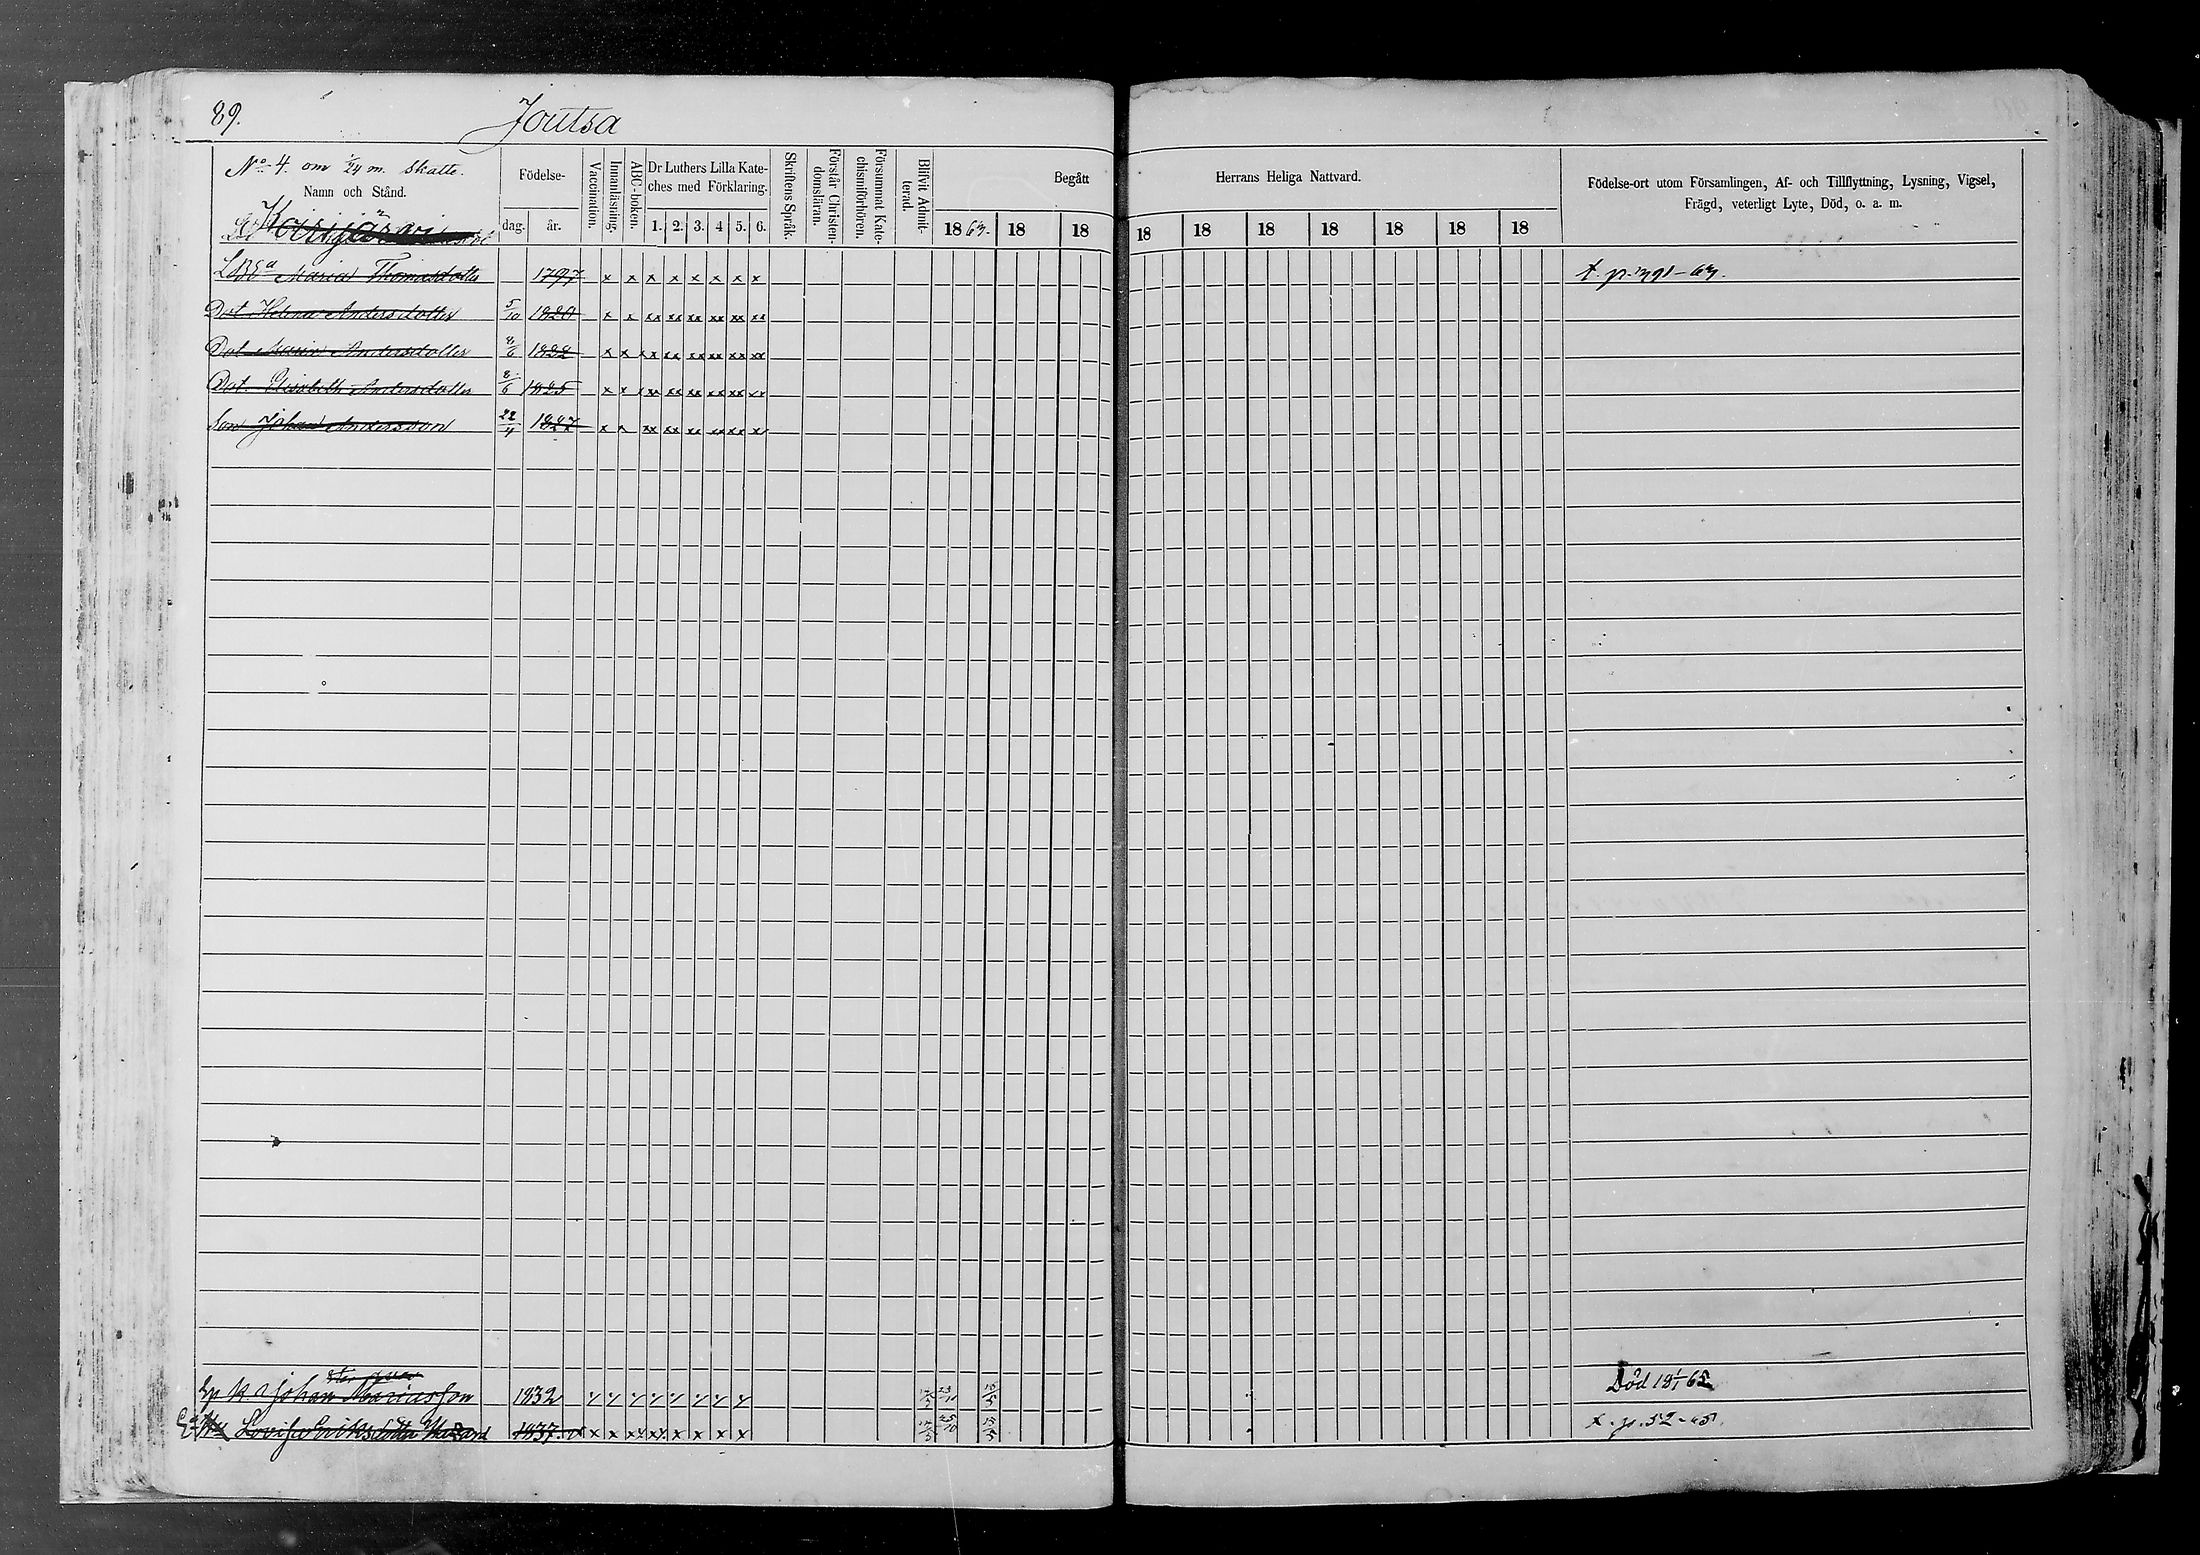 89.
Joutsa
No 4. om 1/24 m. skatte.
Namn och Stånd.
Födelse-
dag. år.
Vaccination.
Innanläsning.
ABC-boken.
Dr Luthers Lilla Kate-
ches med Förklaring.
1. 2. 3. 4 5. 6.
Skriftens Språk.
Förstår Christen-
domsläran.
Försummat Kate-
chismiförhören.
Blifvit Admit-
terad.
Begått Herrans Heliga Nattvard.
18 63. 18 18 18 18 18 18 18 18 18
Födelse-ort utom Församlingen, Af- och Tillflyttning, Lysning, Vigsel,
Frägd, veterligt Lyte, Död, o. a. m.
Harjujärvi
Maria Thomasdotter 1797 x x x x x x x x t. p. 391-63.
Dot. Helena Andersdotter 5/10 1820 x x xx xx xx xx xx xx
Dot. Maria Andersdotter 8/6 1822 x x xx xx xx xx xx
Dot. Elisabeth Andersdotter 8/6 1825 x x xx xx xx xx xx
Son Johan Andersson 22/4 1827 x x xx xx xx xx xx x
Johan Mariasson 1832 Död 18 1/1 65
Lovisa Eriksdotter 1837 x x x x x x x t. p. 52-65.